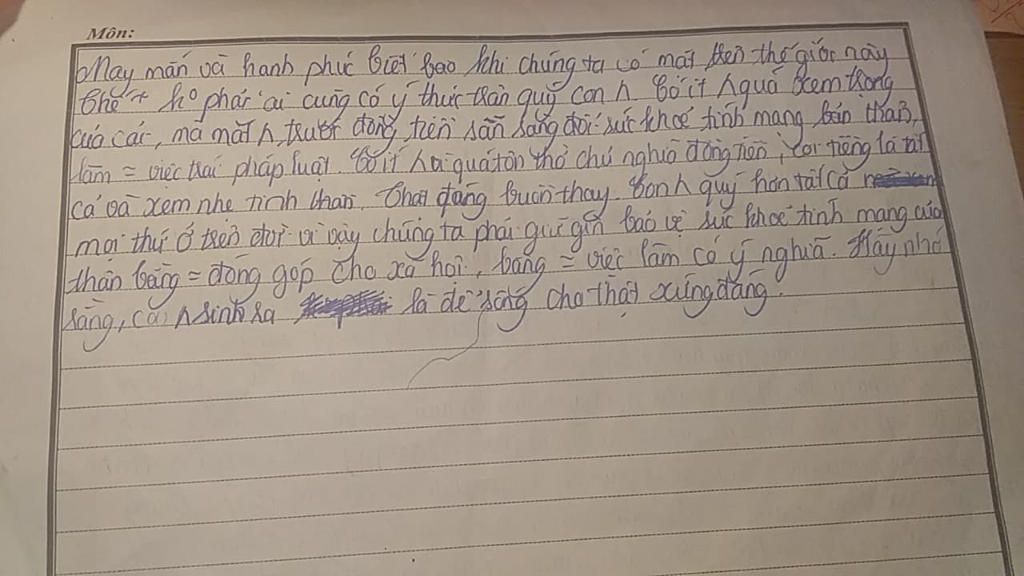 Môn:
May mắn và hanh phúc biết bao khi chúng ta có mặt trên thế giới này
Thế + ko phải ai cũng có ý thức trân quý con Λ Có it Λ quá xem trong
của cải, mù mắt Λ trước đồng tiền sẵn sàng đổi sức khoẻ tính mang bản thân,
làm = việc trái pháp luật. Có it Λ lai quá tôn thờ chủ nghĩa đồng tiền, coi tiếng là tất
cả và xem nhẹ tinh thần. Thật đáng buồn thay. Con Λ quý hơn tất cả
moi thứ ở trên đời vì vậy chúng ta phải giữ gìn bảo vệ sức khoẻ tính mang của
thân bằng = đóng góp cho xã hoi, bằng = việc làm có ý nghĩa. Hãy nhớ
rằng, con Λ sinh ra là để sống cho thật xứng đáng.